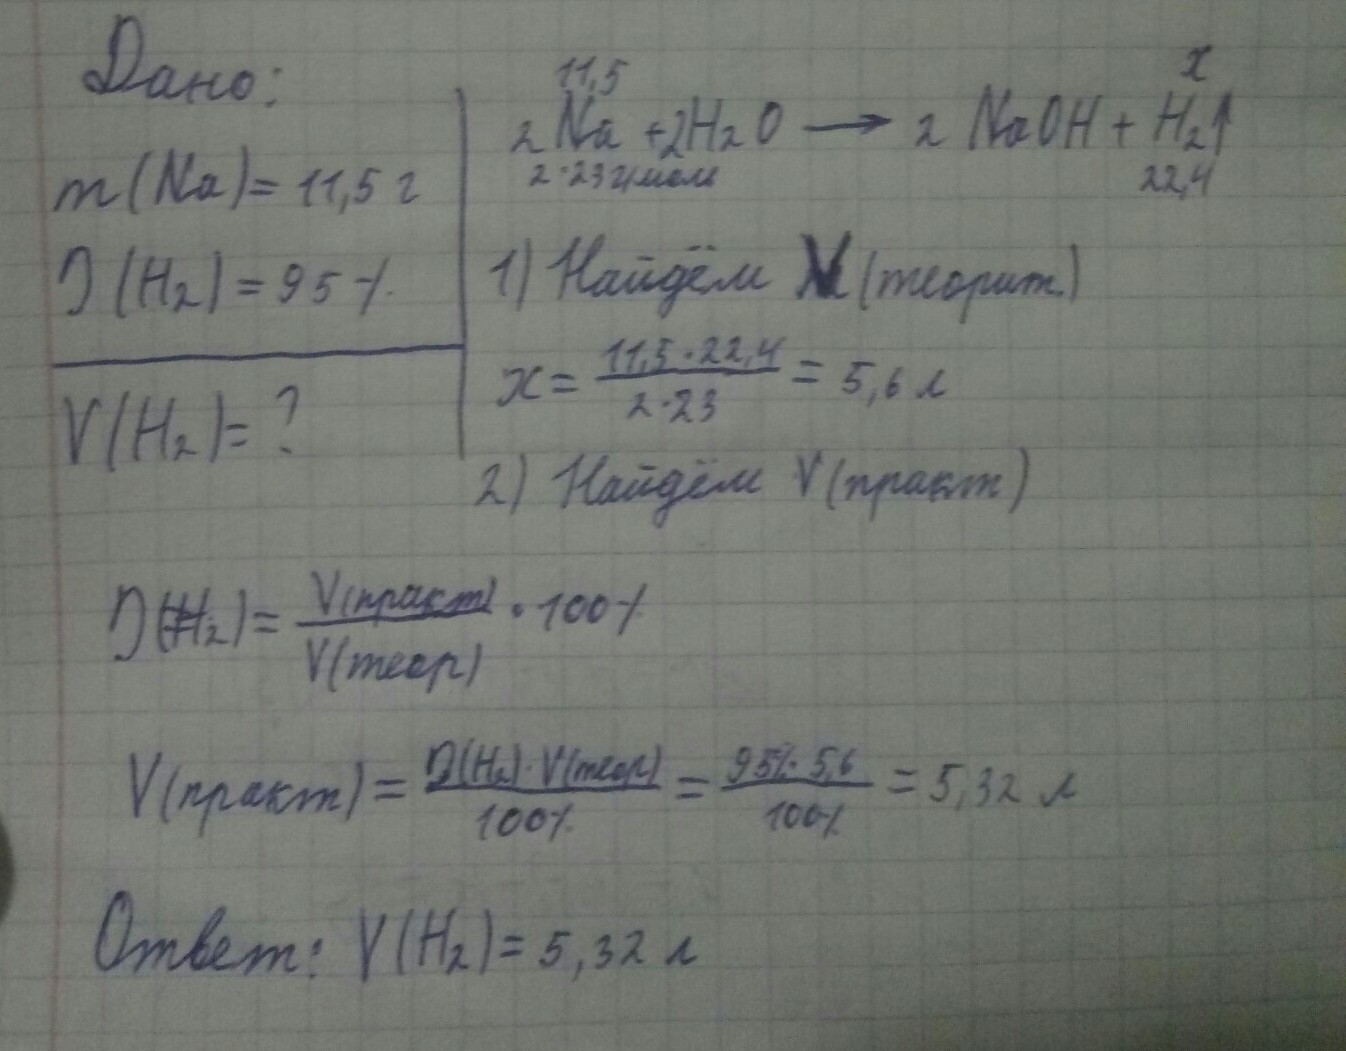 Дано:
m(Na)= 11,5 г
η(H₂)= 95 %
V(H₂)= ?
11,5 x
2 Na + 2H₂O → 2 NaOH + H₂↑
2·23 г/моль 22,4
1) Найдём V(теорит.)
x = 11,5·22,4 / 2·23 = 5,6 л
2) Найдём V(практ)
η(H₂)= V(практ) / V(теор) · 100%
V(практ)= η(H₂)·V(теор) / 100% = 95%·5,6 / 100% = 5,32 л
Ответ: V(H₂)= 5,32 л